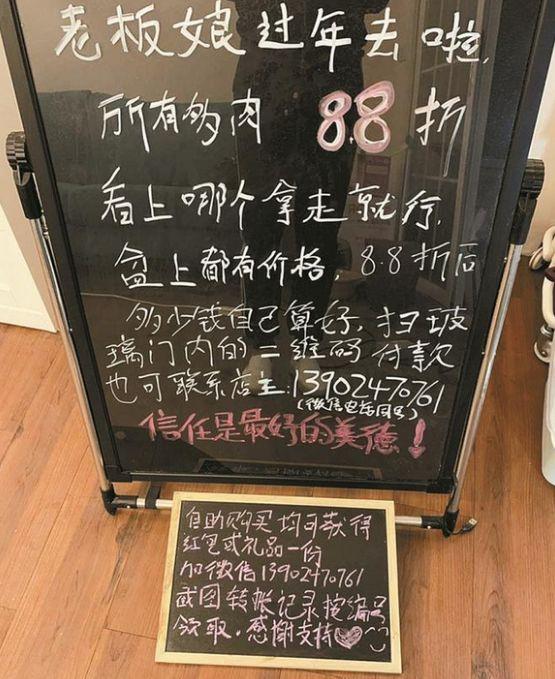 老板娘过年去啦,
所有多肉 8.8 折
看上哪个拿走就行,
盆上都有价格, 8.8折后
多少钱自己算好, 扫玻
璃门内的二维码付款
也可联系店主:13902470761
(微信电话同号)
信任是最好的美德!
自助购买均可获得
红包或礼品一份
加微信13902470761
截图转帐记录按编号
领取, 感谢支持